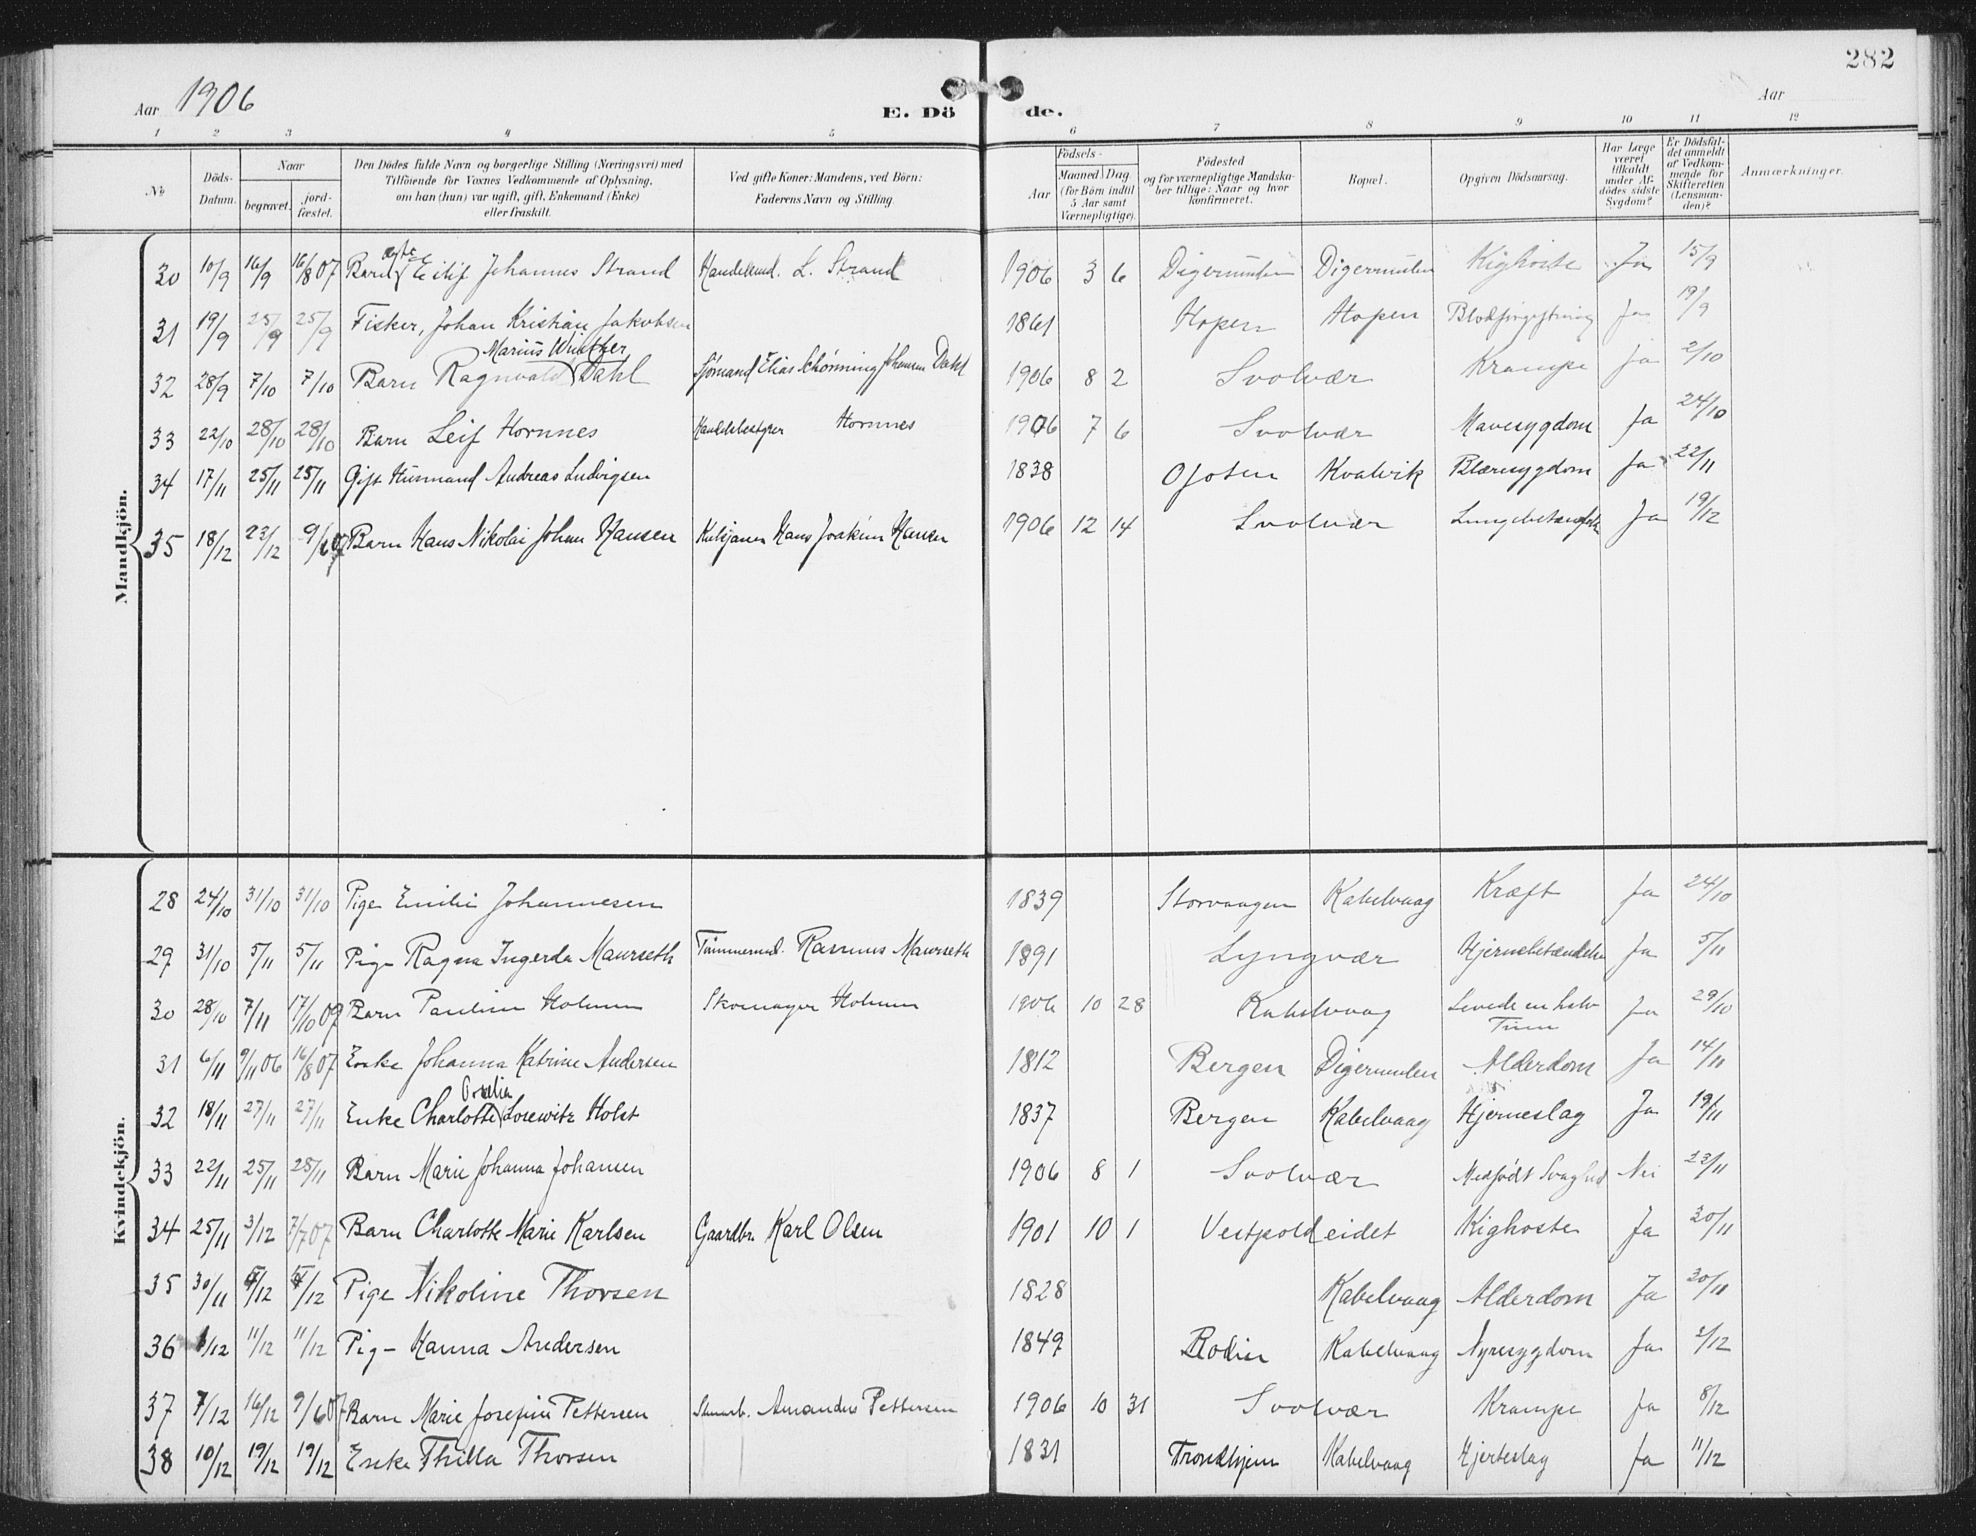 282
Aar 1906
E. Döde.
Aar
1 2 3 4 5 6 7 8 9 10 11 12
No
Döds-Datum.
Naar
begravet.
jord-fæstet.
Den Dödes fulde Navn og borgerlige Stilling (Næringsvei) med
Tilföiende for Voxnes Vedkommende af Oplysning,
om han (hun) var ugift, gift, Enkemand (Enke)
eller fraskilt.
Ved gifte Koner: Mandens, ved Börn:
Faderens Navn og Stilling.
Födsels-
Aar
Maaned Dag
(for Börn indtil
5 Aar samt
Værnepligtige).
Födested
og for værnepligtige Mandska-
ber tillige: Naar og hvor
konfirmeret.
Bopæl.
Opgiven Dödsaarsag.
Har Læge
været
tilkaldt
under Af-
dödes sidste
Sygdom?
Er Dödsfal-
det anmeldt
af Vedkom-
mende for
Skifteretten
(Lensman-
den)?
Anmærkninger.
Mandkjön.
30 10/9 16/9 16/8 07 Barn Johannes Strand Handelsmd. L. Strand 1906 3 6 Digermulen Digermulen Kighoste Ja 15/9
31 19/9 25/9 25/9 Fisker, Johan Kristian Jakobsen 1861 Hopen Hopen Blodforgiftning Ja 19/9
Marius Winther
32 28/9 7/10 7/10 Barn Ragnvald Dahl Sjømand Elias Schønning Johansen Dahl 1906 8 2 Svolvær Krampe Ja 2/10
33 22/10 28/10 28/10 Barn Leif Hornnes Handelsbestyrer Hornnes 1906 7 6 Svolvær Mavesygdom Ja 24/10
34 17/11 25/11 25/11 Gift Husmand Andreas Ludvigsen 1838 Ofoten Kvalvik Blæresygdom Ja 22/11
35 18/12 23/12 9/6 07 Barn Hans Nikolai Johan Hansen Hans Joakim Hansen 1906 12 14 Svolvær Lungebetændelse Ja 19/12
Kvindekjön.
28 24/10 31/10 31/10 Pige Emilie Johannesen 1839 Storvaagen Kabelvaag Kræft Ja 24/10
29 31/10 5/11 5/11 Pige Ragna Ingerda Maurseth Tømmermd. Rasmus Maurseth 1891 Lyngvær Hjernebetændelse Ja 5/11
30 28/10 7/11 17/10 07 Barn Pauline Holmen Skomager Holmen 1906 10 28 Kabelvaag Levede en halv Ja 29/10
Time
31 6/11 9/11 06 16/8 07 Enke Johanna Katrine Andersen 1812 Bergen Digermulen Alderdom Ja 14/11
32 18/11 27/11 27/11 Enke Charlotte Losewitz Holst 1837 Bergen Kabelvaag Hjerneslag Ja 19/11
33 22/11 25/11 25/11 Barn Marie Johanna Johansen 1906 8 1 Svolvær Medfødt Svaghed Nei 23/11
34 25/11 3/12 7/7 07 Barn Charlotte Marie Karlsen Gaardbr. Karl Olsen 1901 10 1 Vestpoldeidet Kighoste Ja 30/11
35 30/11 5/12 5/12 Pige Nikoline Thorsen 1828 Kabelvaag Alderdom Ja 30/11
36 1/12 11/12 11/12 Pige Hanna Andersen 1849 Bodin Kabelvaag Nyresygdom Ja 2/12
37 7/12 16/12 9/6 07 Barn Marie Josefine Pettersen Amandus Pettersen 1906 10 31 Svolvær Krampe Ja 8/12
38 10/12 19/12 19/12 Enke Thilla Thorsen 1831 Trondhjem Kabelvaag Hjerteslag Ja 11/12